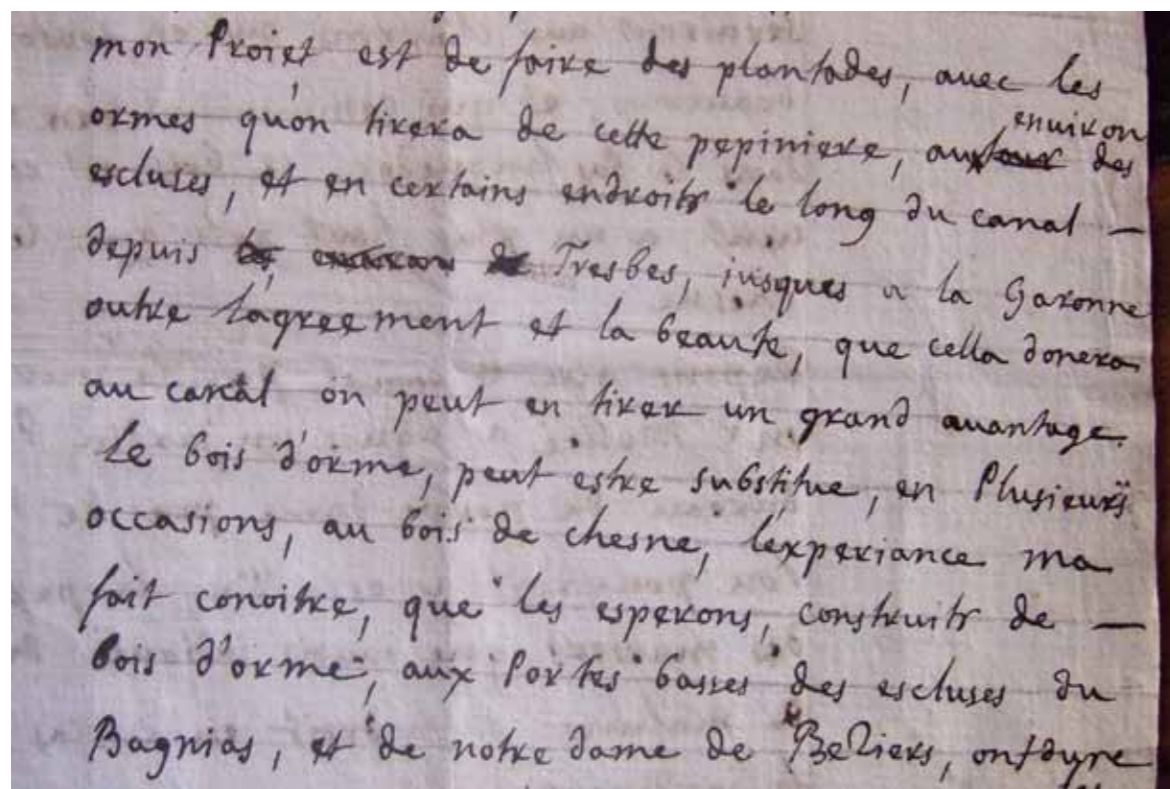 mon Proiet est de faire des plantades, avec les
ormes qu'on tirera de cette pepiniere, aux environ des
escluses, et en certains endroits le long du canal —
depuis Tresbes, iusques a la Garonne
outre l'agreement et la beaute, que cella donera
au canal on peut en tirer un grand auantage.
Le bois d'orme, peut estre substitue, en Plusieurs
occasions, au bois de chesne, l'experiance ma
fait conoitre, que les esperons, construits de —
bois d'orme, aux Portes basses des escluses du
Bagnias, et de notre dame de Beziers, ont dure